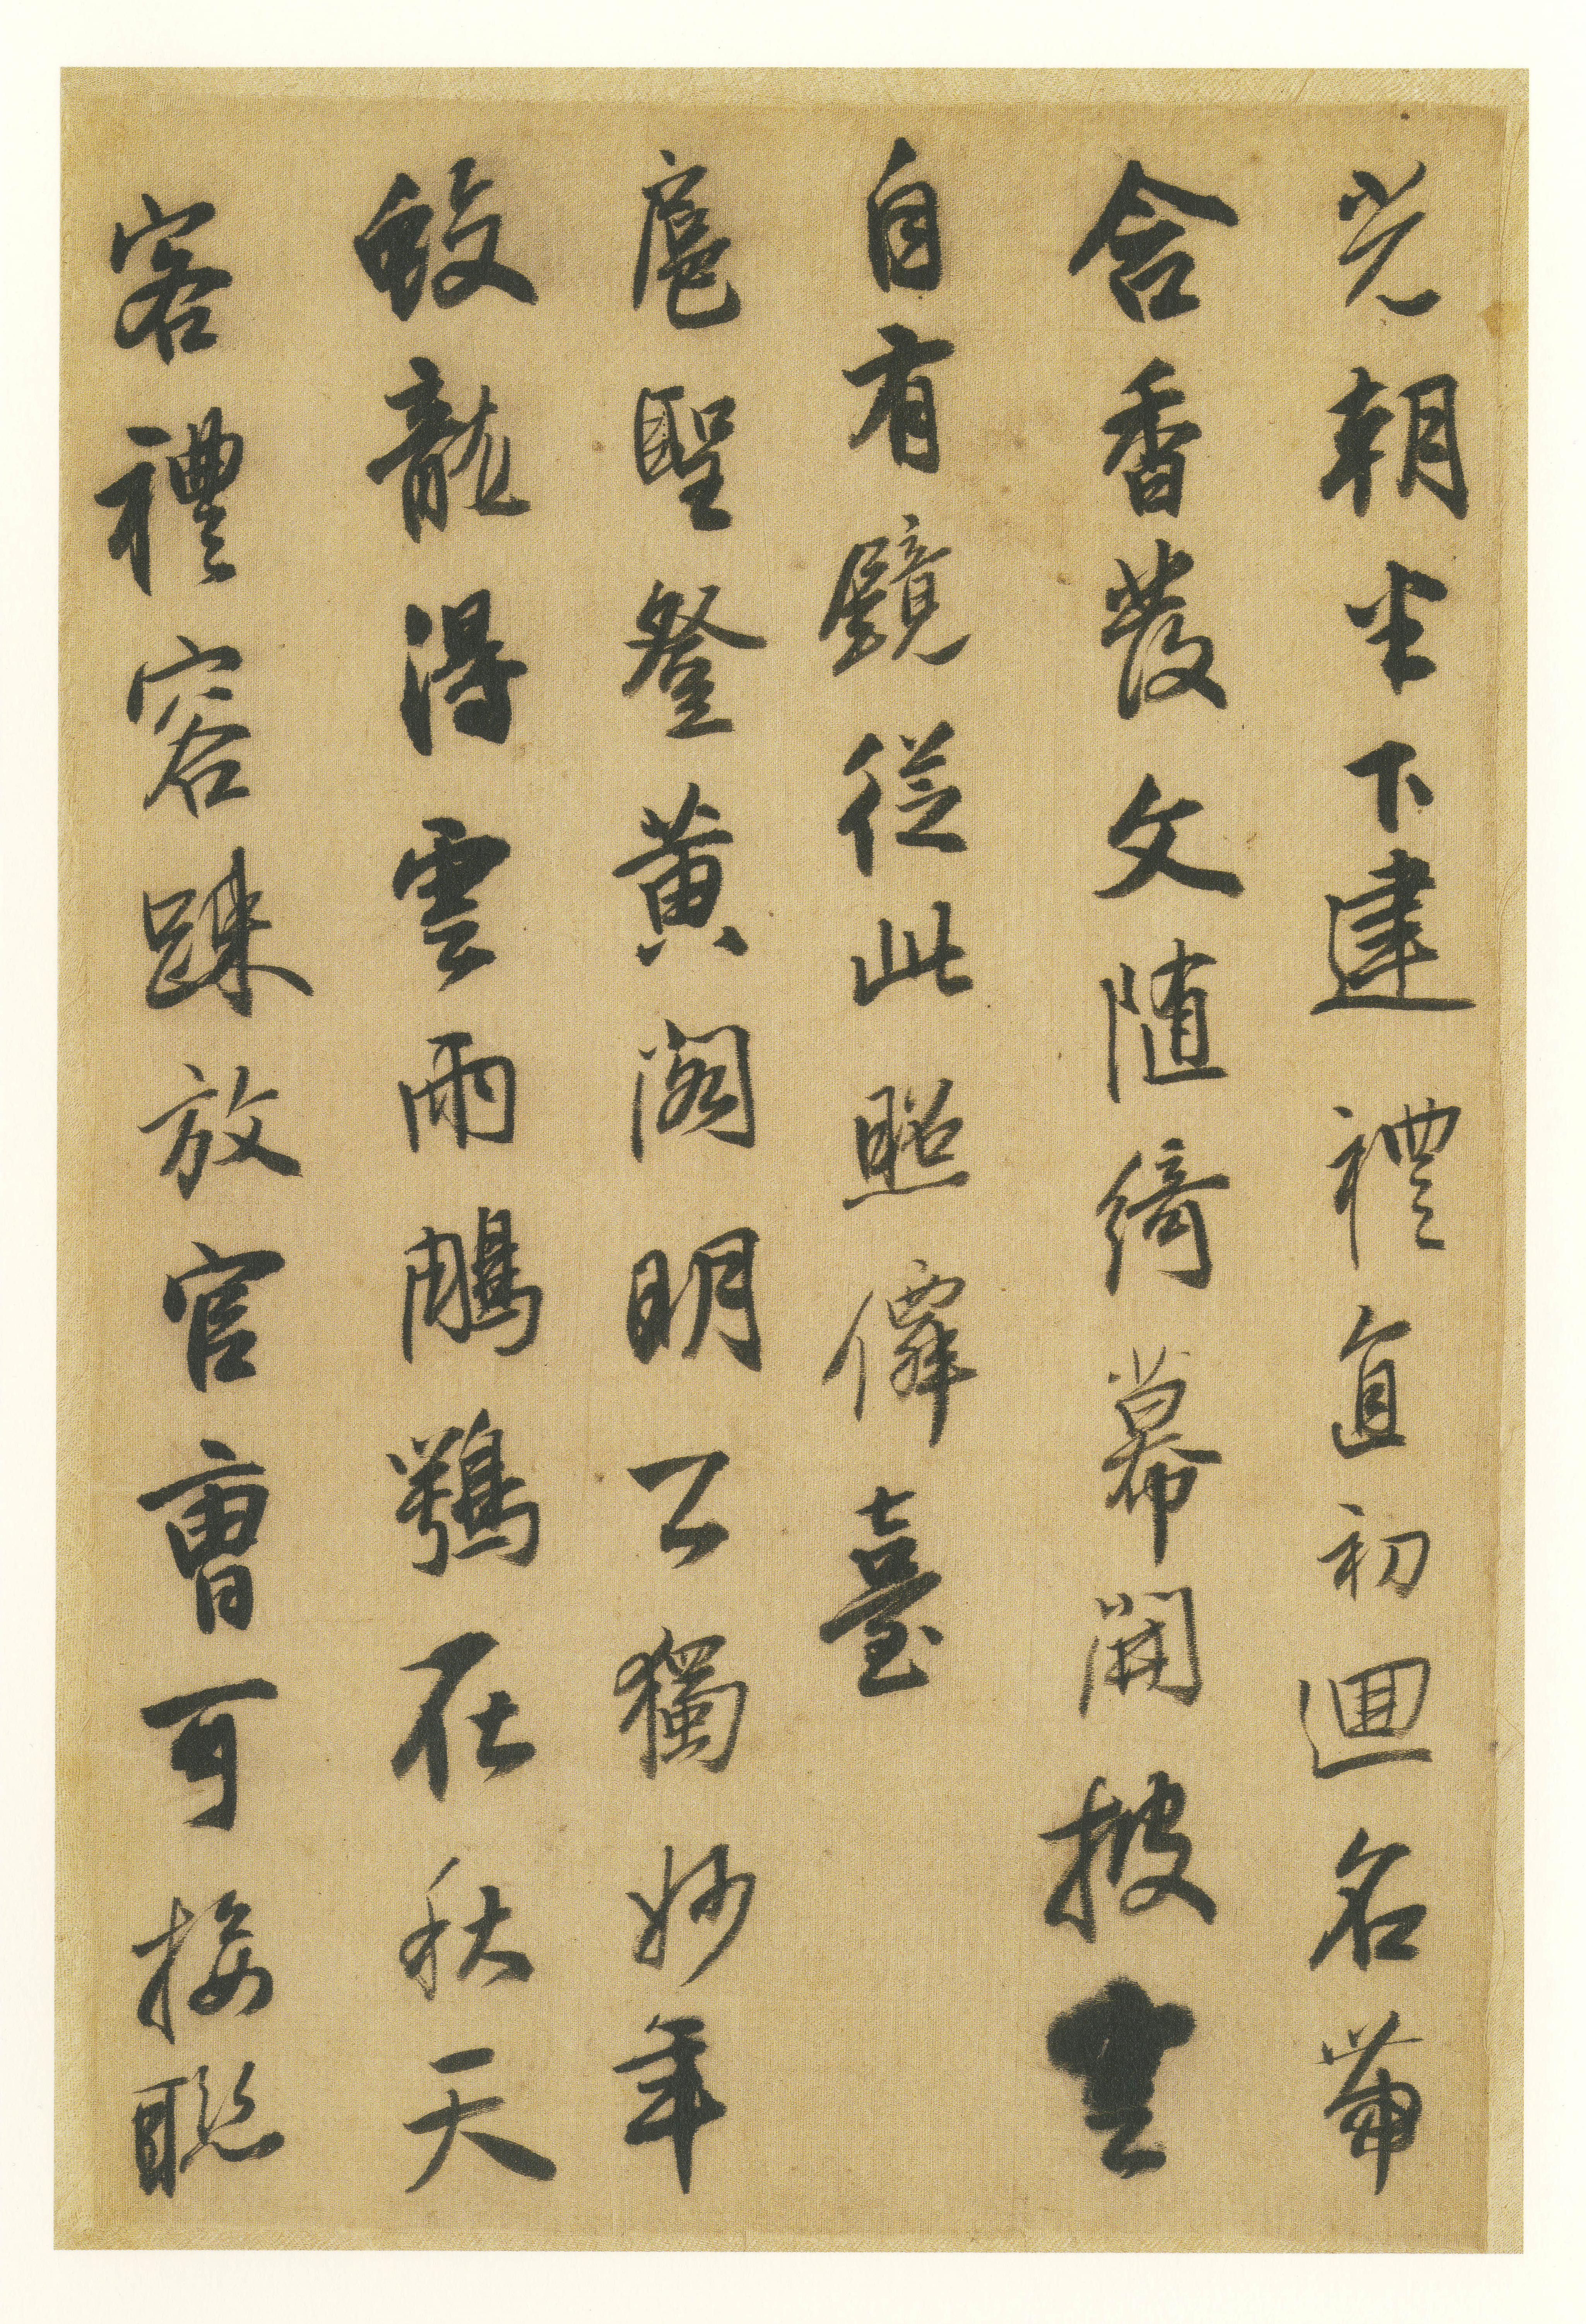 光朝半下建禮直初迴名帶
含香發文隨綺幕開披雲
自有鏡從此照僊臺
扈聖登黄閣明公獨妙年
蛟龍得雲雨鵰鶚在秋天
客禮容踈放官曹可接聯